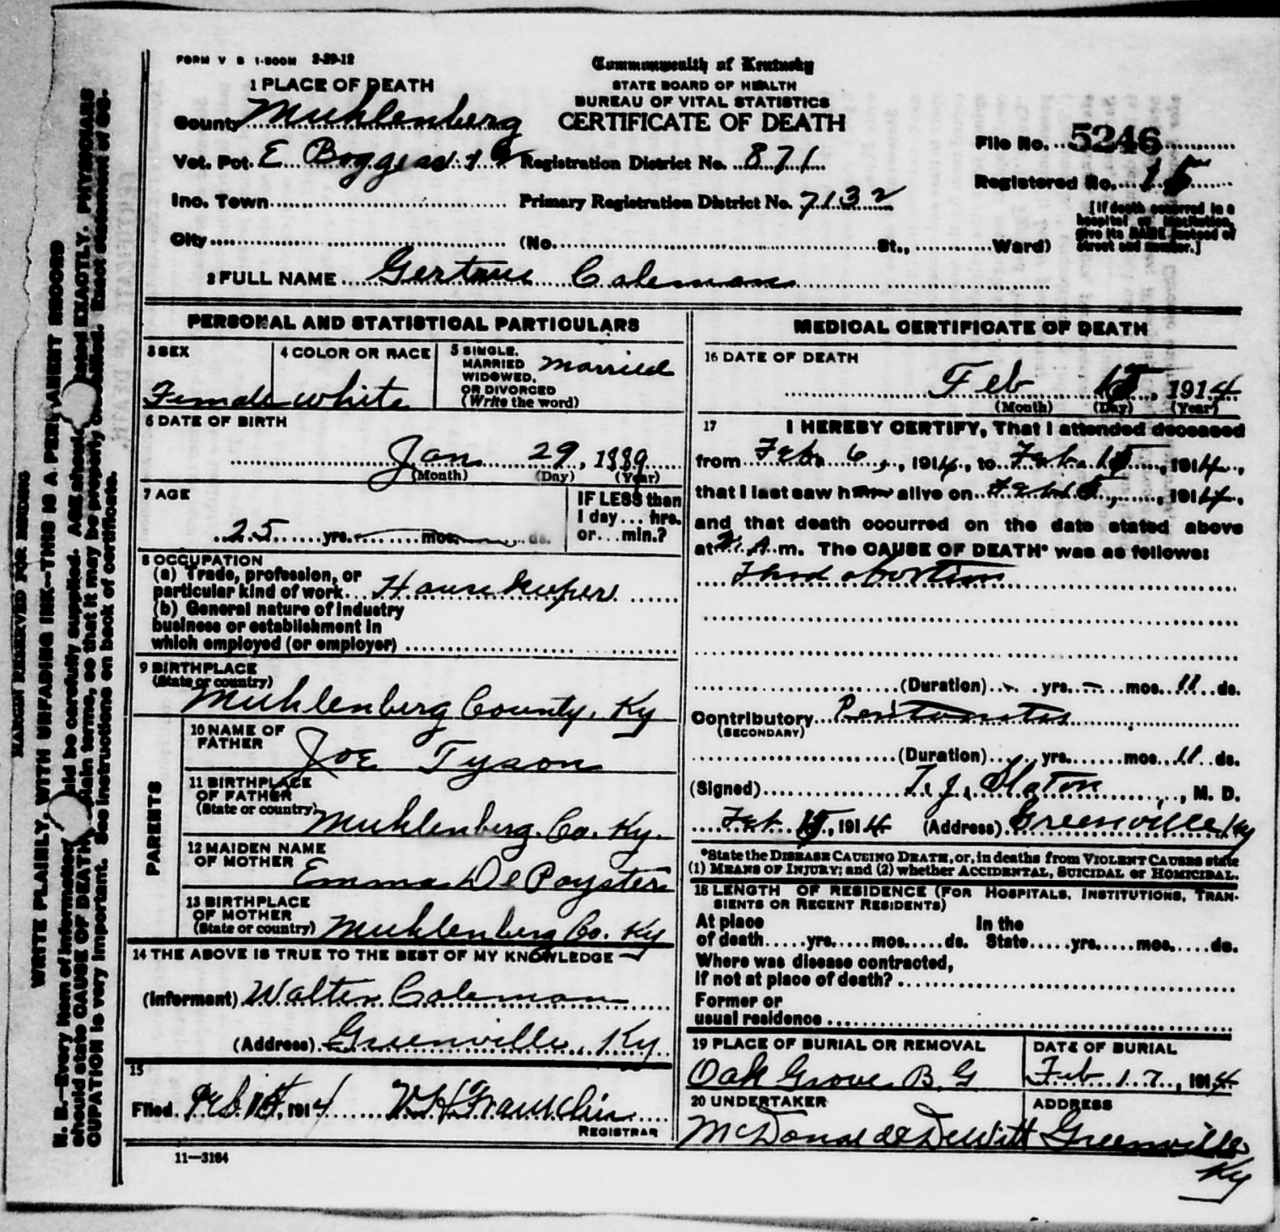 FORM V S 1-500M 2-29-12
Commonwealth of Kentucky
STATE BOARD OF HEALTH
BUREAU OF VITAL STATISTICS
CERTIFICATE OF DEATH
1 PLACE OF DEATH
County Muhlenberg
Vot. Pct. E Boggess
Registration District No. 871
Inc. Town
Primary Registration District No. 7132
City (No. St., Ward)
File No. 5246
Registered No. 15
[If death occurred in a
hospital or institution,
give its NAME instead of
street and number.]
2 FULL NAME Gertrue Coleman
PERSONAL AND STATISTICAL PARTICULARS
3 SEX
Female
4 COLOR OR RACE
white
5 SINGLE,
MARRIED
WIDOWED,
OR DIVORCED
(Write the word)
married
6 DATE OF BIRTH
Jan 29, 1889
(Month) (Day) (Year)
7 AGE
25 yrs. mos. ds.
IF LESS than
1 day... hrs.
or... min.?
8 OCCUPATION
(a) Trade, profession, or
particular kind of work Housekeeper
(b) General nature of industry
business or establishment in
which employed (or employer)
9 BIRTHPLACE
(State or country)
Muhlenberg County, Ky
PARENTS
10 NAME OF
FATHER
Joe Tyson
11 BIRTHPLACE
OF FATHER
(State or country)
Muhlenberg Co. Ky.
12 MAIDEN NAME
OF MOTHER
Emma DePoyster
13 BIRTHPLACE
OF MOTHER
(State or country) Muhlenberg Co. Ky
14 THE ABOVE IS TRUE TO THE BEST OF MY KNOWLEDGE
(Informant) Walter Coleman
(Address) Greenville, Ky
15
Filed 1914
REGISTRAR
11-3184
MEDICAL CERTIFICATE OF DEATH
16 DATE OF DEATH
Feb 15, 1914
(Month) (Day) (Year)
17 I HEREBY CERTIFY, That I attended deceased
from Feb. 6, 1914, to Feb. 15, 1914,
that I last saw her alive on Feb 15, 1914,
and that death occurred on the date stated above
at A.m. The CAUSE OF DEATH* was as follows:
abortion
(Duration) yrs. mos. 11 ds.
Contributory Peritonitis
(SECONDARY)
(Duration) yrs. mos. 11 ds.
(Signed) T. J. Slaton, M. D.
Feb 15, 1914 (Address) Greenville Ky
*State the DISEASE CAUSING DEATH, or, in deaths from VIOLENT CAUSES state
(1) MEANS OF INJURY; and (2) whether ACCIDENTAL, SUICIDAL or HOMICIDAL.
18 LENGTH OF RESIDENCE (FOR HOSPITALS, INSTITUTIONS, TRAN-
SIENTS OR RECENT RESIDENTS)
At place
of death yrs. mos. ds.
In the
State yrs. mos. ds.
Where was disease contracted,
if not at place of death?
Former or
usual residence
19 PLACE OF BURIAL OR REMOVAL
Oak Grove B. G
DATE OF BURIAL
Feb 17, 1914
20 UNDERTAKER
McDonald & DeWitt
ADDRESS
Greenville
Ky
MARGIN RESERVED FOR BINDING
WRITE PLAINLY, WITH UNFADING INK—THIS IS A PERMANENT RECORD
N. B.—Every item of information should be carefully supplied. AGE should be stated EXACTLY. PHYSICIANS
should state CAUSE OF DEATH in plain terms, so that it may be properly classified. Exact statement of OC-
CUPATION is very important. See instructions on back of certificate.